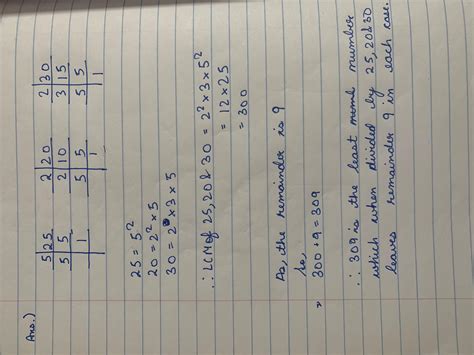 Ans.)
5 25 2 20 2 30
5 5 2 10 3 15
1 5 5 5 5
1 1
25 = 5²
20 = 2² × 5
30 = 2 × 3 × 5
∴ LCM of 25, 20 & 30 = 2² × 3 × 5²
= 12 × 25
= 300
As, the remainder is 9
So,
300 + 9 = 309
∴ 309 is the least number
which when divided by 25, 20 & 30
leaves remainder 9 in each case.